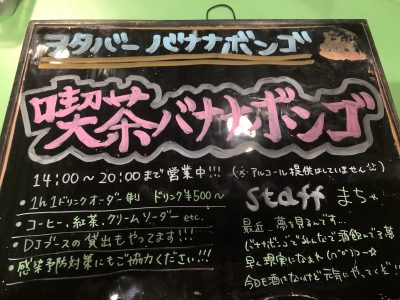 ヲタバー バナナボンゴ
喫茶バナナボンゴ
14:00〜20:00まで営業中!!! (※アルコール提供はしていません)
・1h 1ドリンクオーダー制 ドリンク¥500〜
・コーヒー、紅茶、クリームソーダー etc.
・DJブースの貸出もやってます!!!
・感染予防対策にもご協力ください!!!
staff まちゃ
最近…夢を見るんです…
バナナボンゴでみんなで酒飲んでる夢
早く現実になぁれ
今日も酒はないけど元気にやってくぞ!!